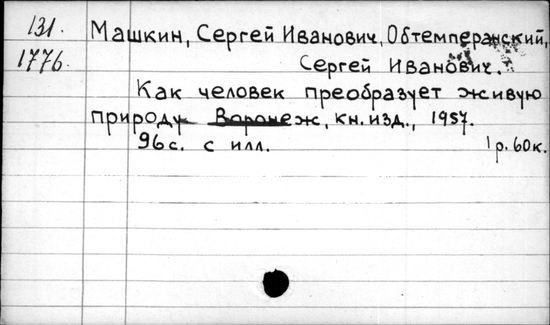 131.
1776.
Машкин, Сергей Иванович, Обтемперанский,
Сергей Иванович.
Как человек преобразует живую
природу Воронеж, кн. изд., 1957.
96 с. с илл. 1 р. 60 к.